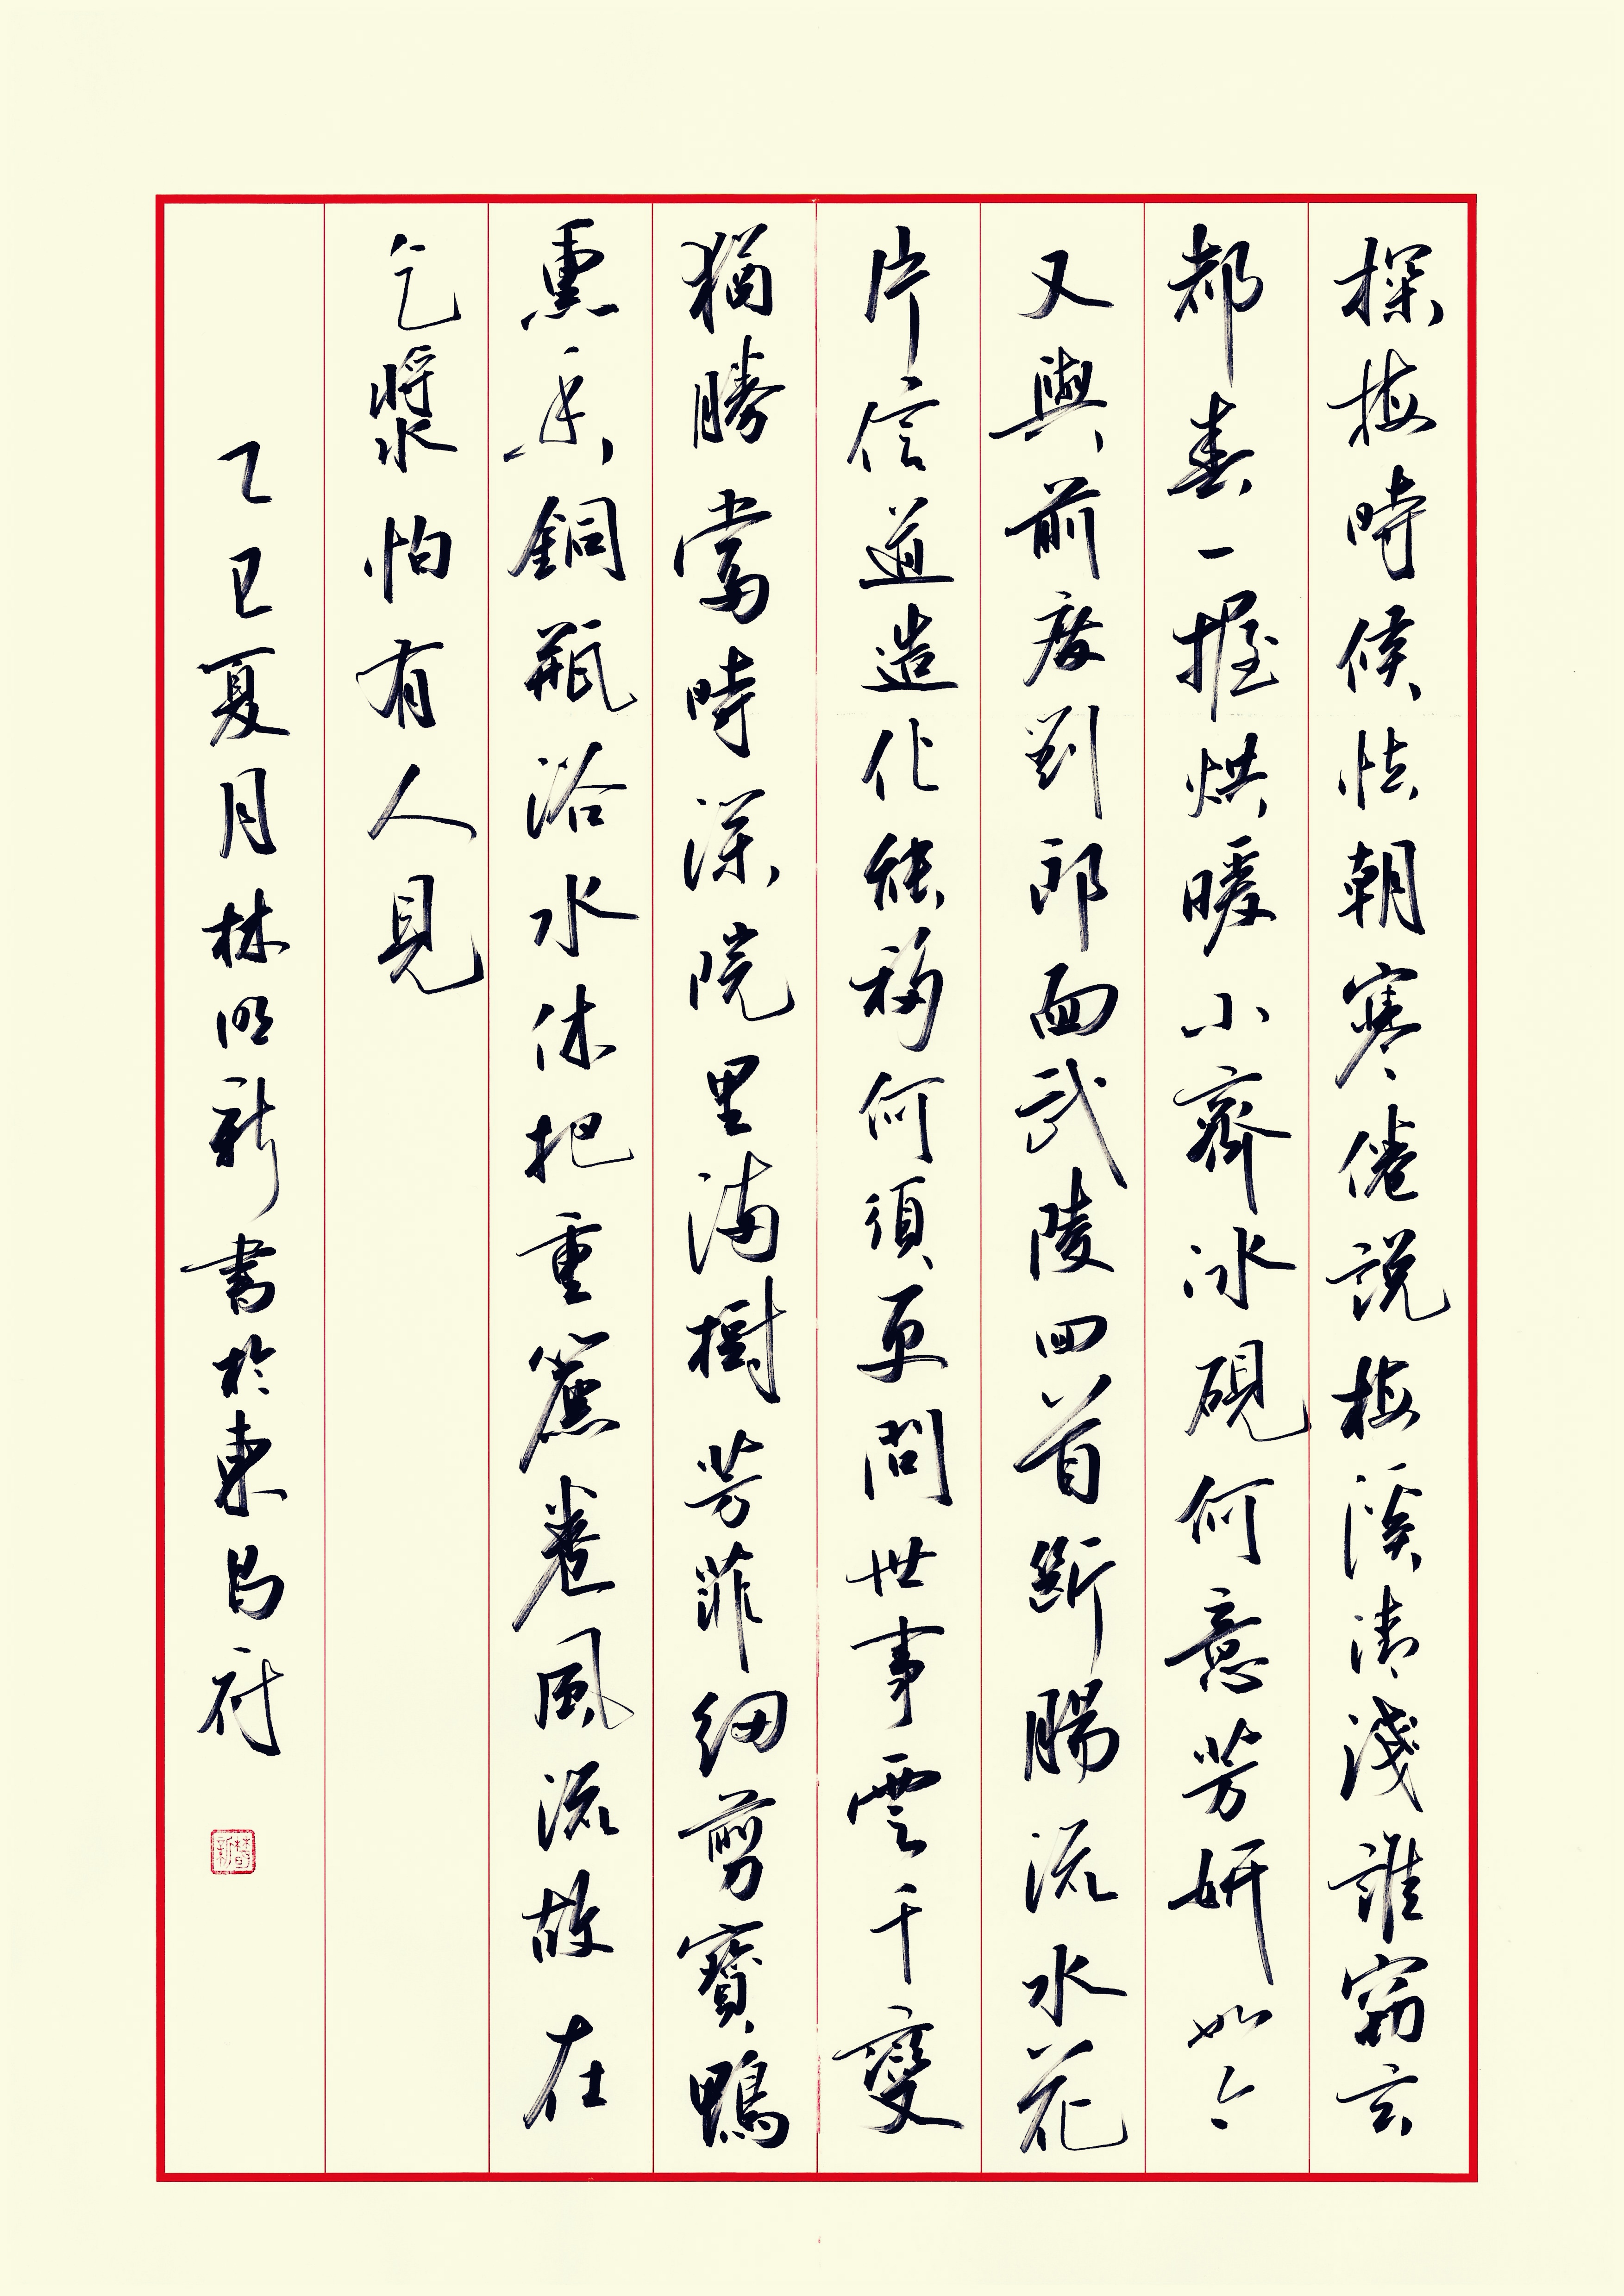 探梅時候怯朝寒倦說梅溪清淺誰竊玄
都春一握烘暖小齋冰硯何意芳妍如今
又與前度劉郎面武陵回首斷腸流水花
片信道造化能移何須更問世事雲千變
猶勝當時深院里滿樹芳菲細剪寶鴨
熏香銅瓶浴水休把重簾卷風流故在
乞漿怕有人見
乙巳夏月林明新書於東昌府